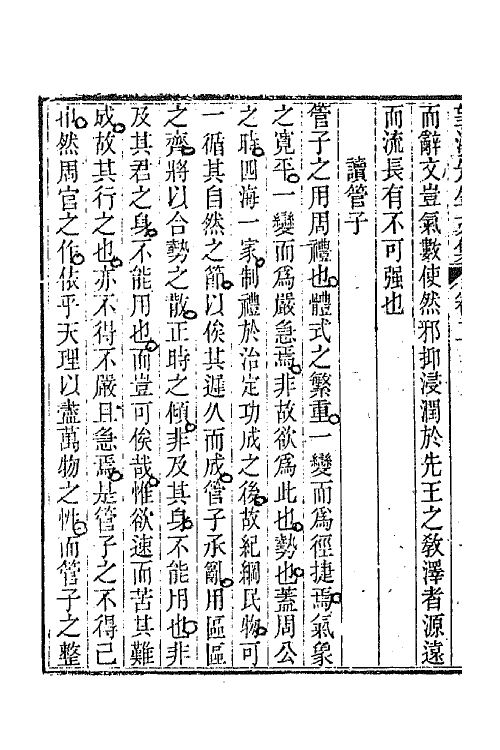 而辭文豈氣數使然邪抑浸潤於先王之敎澤者源遠
而流長有不可强也
讀管子
管子之用周禮也體式之繁重一變而爲徑捷焉氣象
之寛平一變而爲嚴急焉非故欲爲此也勢也蓋周公
之時四海一家制禮於治定功成之後故紀綱民物可
一循其自然之節以俟其遲久而成管子承亂用區區
之齊將以合勢之散正時之傾非及其身不能用也非
及其君之身不能用也而豈可俟哉惟欲速而苦其難
成故其行之也亦不得不嚴且急焉是管子之不得已
也然周官之作依乎天理以盡萬物之性而管子之整